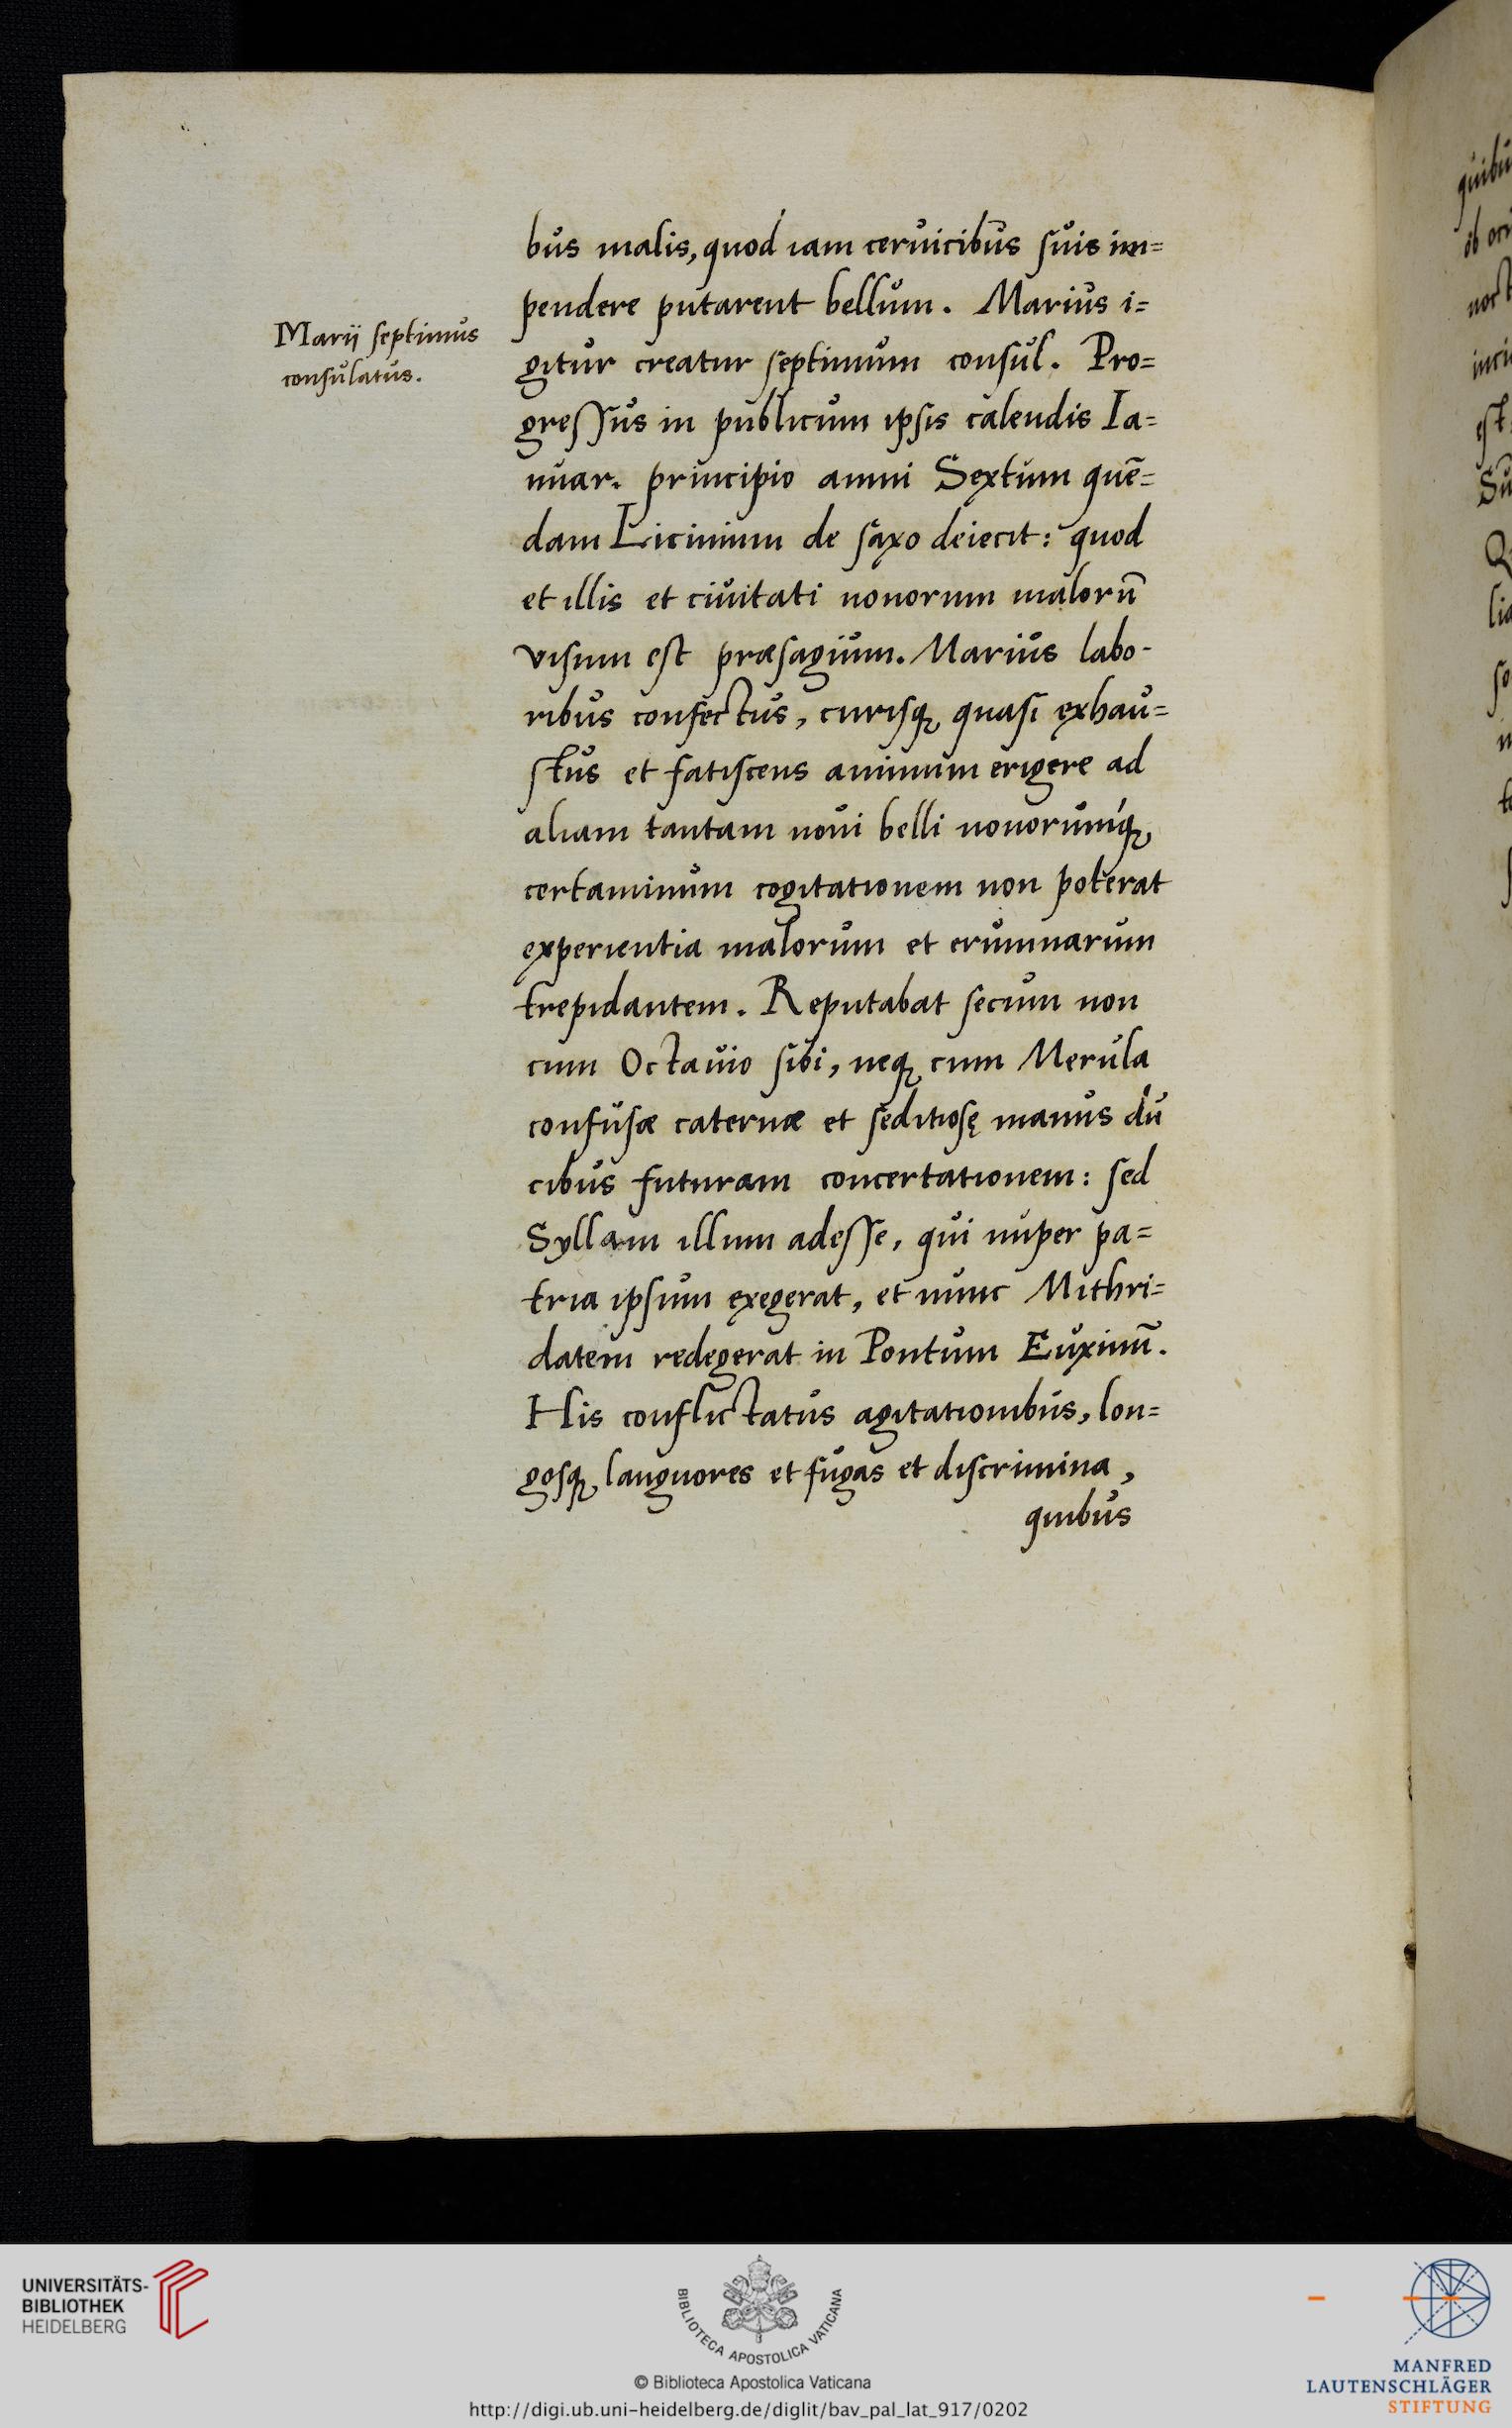 Marij septimus
consulatus.
bus malis, quod iam ceruicibus suis im=
pendere putarent bellum. Marius i=
gitur creatur septimum consul. Pro=
gressus in publicum ipsis calendis Ia=
nuar. principio anni Sextum quē=
dam Licinium de saxo deiecit: quod
et illis et ciuitati nouorum malorū
visum est præsagium. Marius labo-
ribus confectus, curisq, quasi exhau=
stus et fatiscens animum erigere ad
aliam tantam noui belli nouorumq́,
certaminum cogitationem non poterat
experientia malorum et erumnarum
trepidantem. Reputabat secum non
cum Octauio sibi, neq, cum Merula
confusæ cateruæ et seditiosę manus du
cibus futuram concertationem: sed
Syllam illum adesse, qui nuper pa=
tria ipsum exegerat, et nunc Mithri=
datem redegerat in Pontum Euxinū.
His conflictatus agitationibus, lon=
gosq, languores et fugas et discrimina,
quibus
quibu
ob oc
noct
inci
est
Su
Q
lia
so
UNIVERSITÄTS-
BIBLIOTHEK
HEIDELBERG
BIBLIOTECA APOSTOLICA VATICANA
© Biblioteca Apostolica Vaticana
http://digi.ub.uni-heidelberg.de/diglit/bav_pal_lat_917/0202
MANFRED
LAUTENSCHLÄGER
STIFTUNG